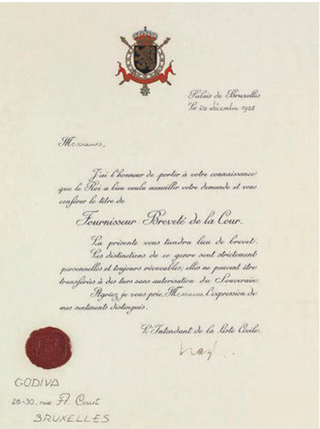 Palais de Bruxelles
Le 20 décembre 1968
Messieurs,
J'ai l'honneur de porter à votre connaissance
que le Roi a bien voulu accueillir votre demande et vous
conférer le titre de
Fournisseur Breveté de la Cour.
La présente vous tiendra lieu de brevet.
Les distinctions de ce genre sont strictement
personnelles et toujours révocables; elles ne peuvent être
transférées à des tiers sans autorisation du Souverain
Agréez je vous prie, Messieurs l'expression de
mes sentiments distingués.
L'Intendant de la Liste Civile.
GODIVA
28-30, rue
BRUXELLES